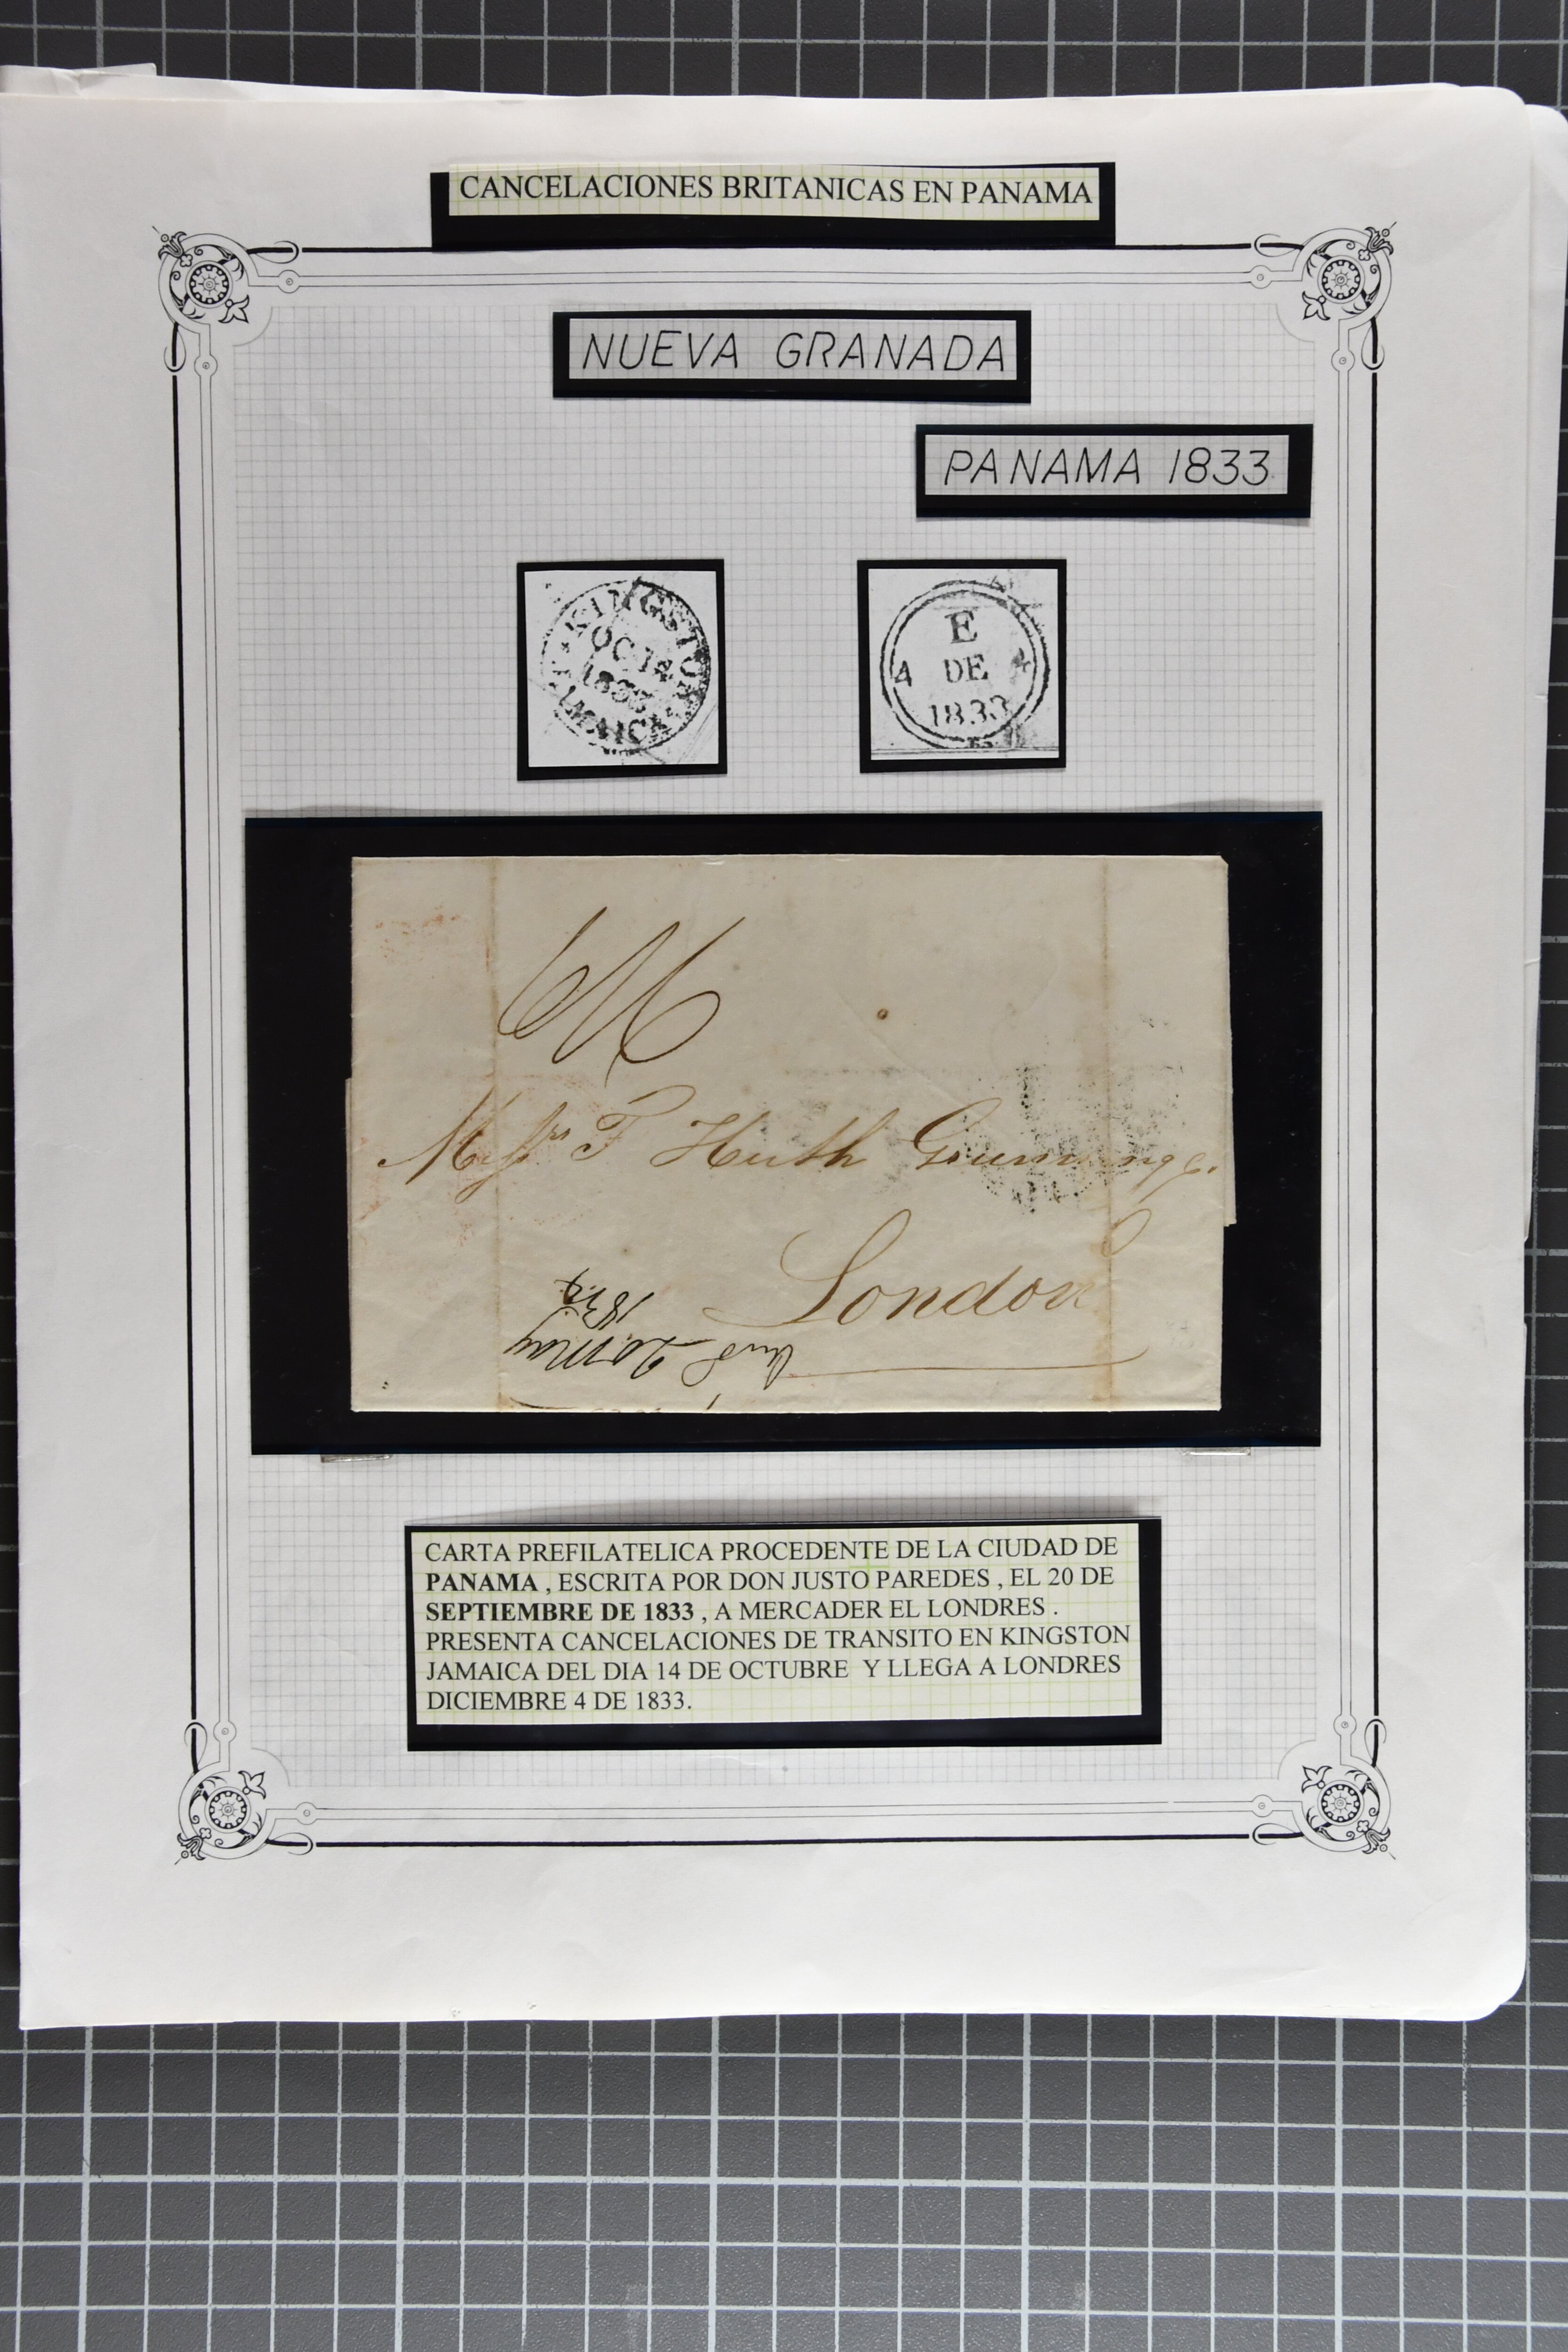 CANCELACIONES BRITANICAS EN PANAMA
NUEVA GRANADA
PANAMA 1833
KINGSTON
OC 14
1833
JAMAICA
E
4 DE
1833
Messrs F Huth
London
20 May
CARTA PREFILATELICA PROCEDENTE DE LA CIUDAD DE
PANAMA , ESCRITA POR DON JUSTO PAREDES , EL 20 DE
SEPTIEMBRE DE 1833 , A MERCADER EL LONDRES .
PRESENTA CANCELACIONES DE TRANSITO EN KINGSTON
JAMAICA DEL DIA 14 DE OCTUBRE Y LLEGA A LONDRES
DICIEMBRE 4 DE 1833.